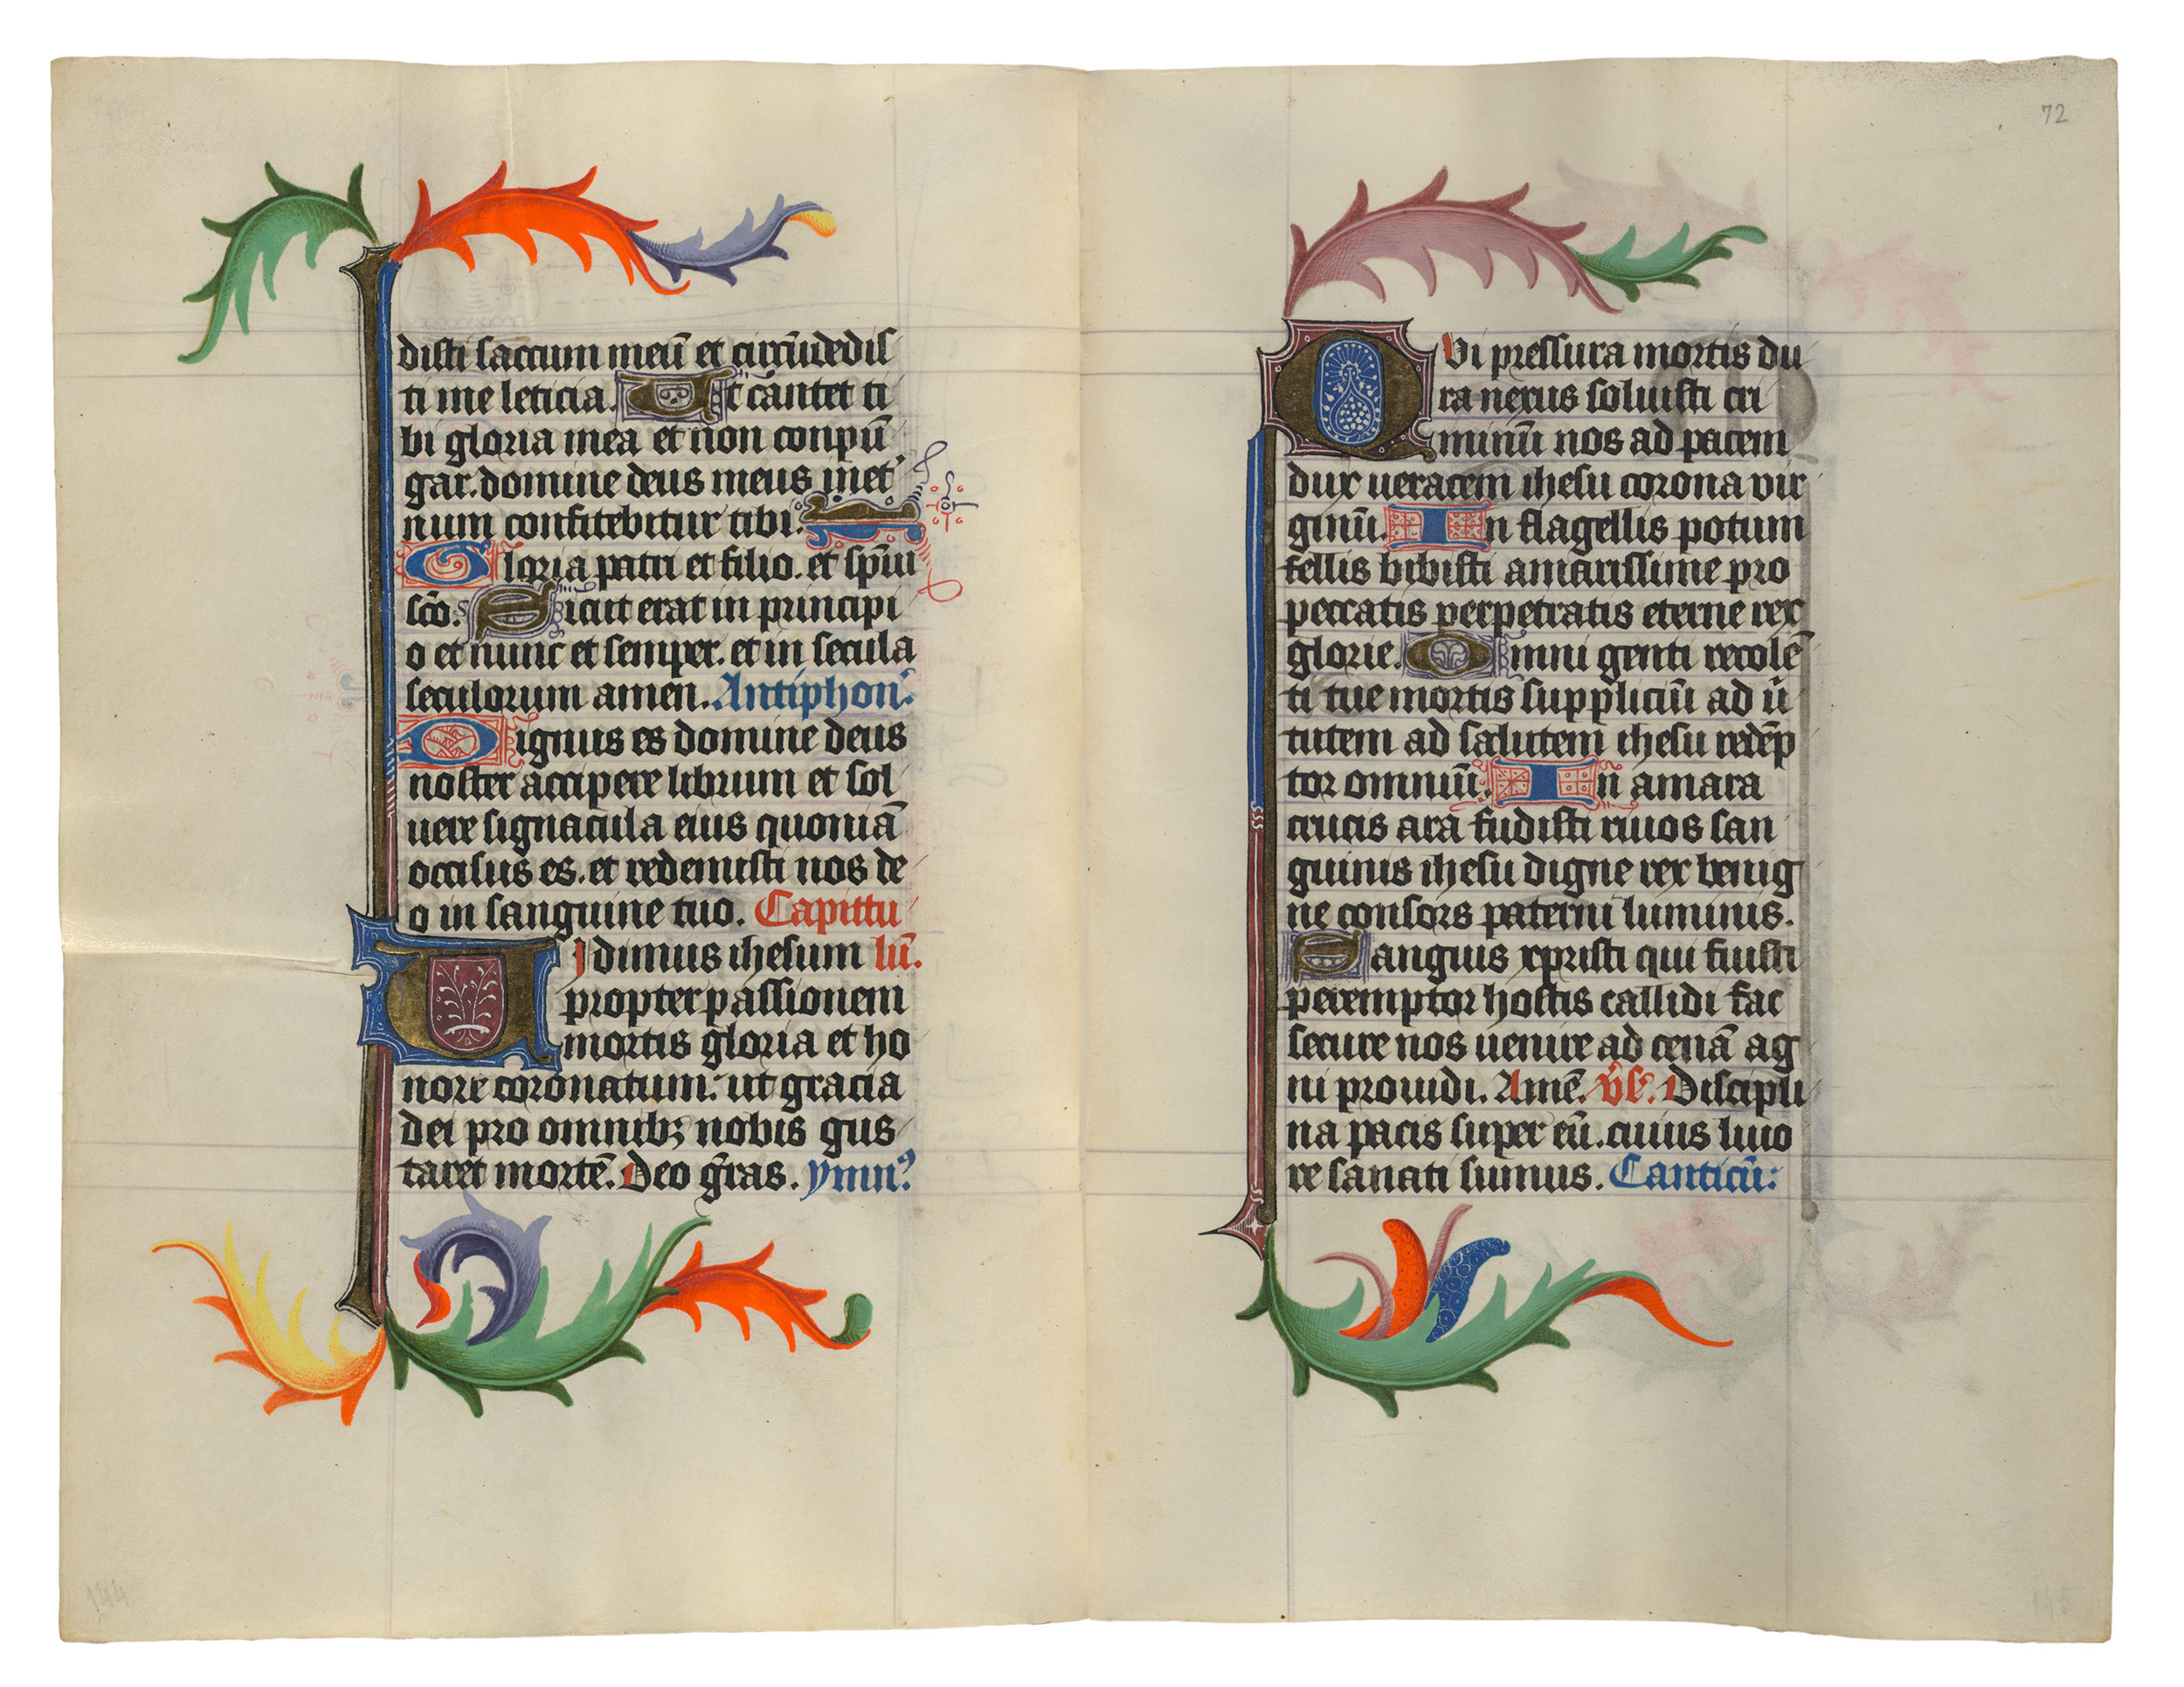 disti saccum meū et circūdedis
ti me leticia. Ut cantet ti
bi gloria mea et non conpū
gar. domine deus meus inet
num confitebitur tibi.
Gloria patri et filio. et spūi
scō. Sicut erat in principi
o et nunc et semper. et in secula
seculorum amen. Antiphon⁹
Dignus es domine deus
noster accipere librum et sol
uere signacula eius quoniā
occisus es. et redemisti nos de
o in sanguine tuo. Capittu
Vidimus ihesum lū.
propter passionem
mortis gloria et ho
nore coronatum. ut gracia
dei pro omnibꝫ nobis gus
taret mortē. Deo grās. ymn⁹
72
Qvi pressura mortis du
ra nexus soluisti cri
minū nos ad pacem
dux ueracem ihesu corona vir
ginū. In flagellis potum
fellis bibisti amarissime pro
peccatis perpetratis eterne rex
glorie. Omni genti recolē
ti tue mortis suppliciū ad ū
tutem ad salutem ihesu redēp
tor omniū. In amara
crucis ara fudisti riuos san
guinis ihesu digne rex benig
ne consors paterni luminis.
Sanguis xpristi qui fuisti
peremptor hostis callidi fac
secure nos uenire ad cenā ag
ni prouidi. Amē. v̄s. Discipli
na pacis super eū. cuius liuo
re sanati sumus. Canticū:
144
145